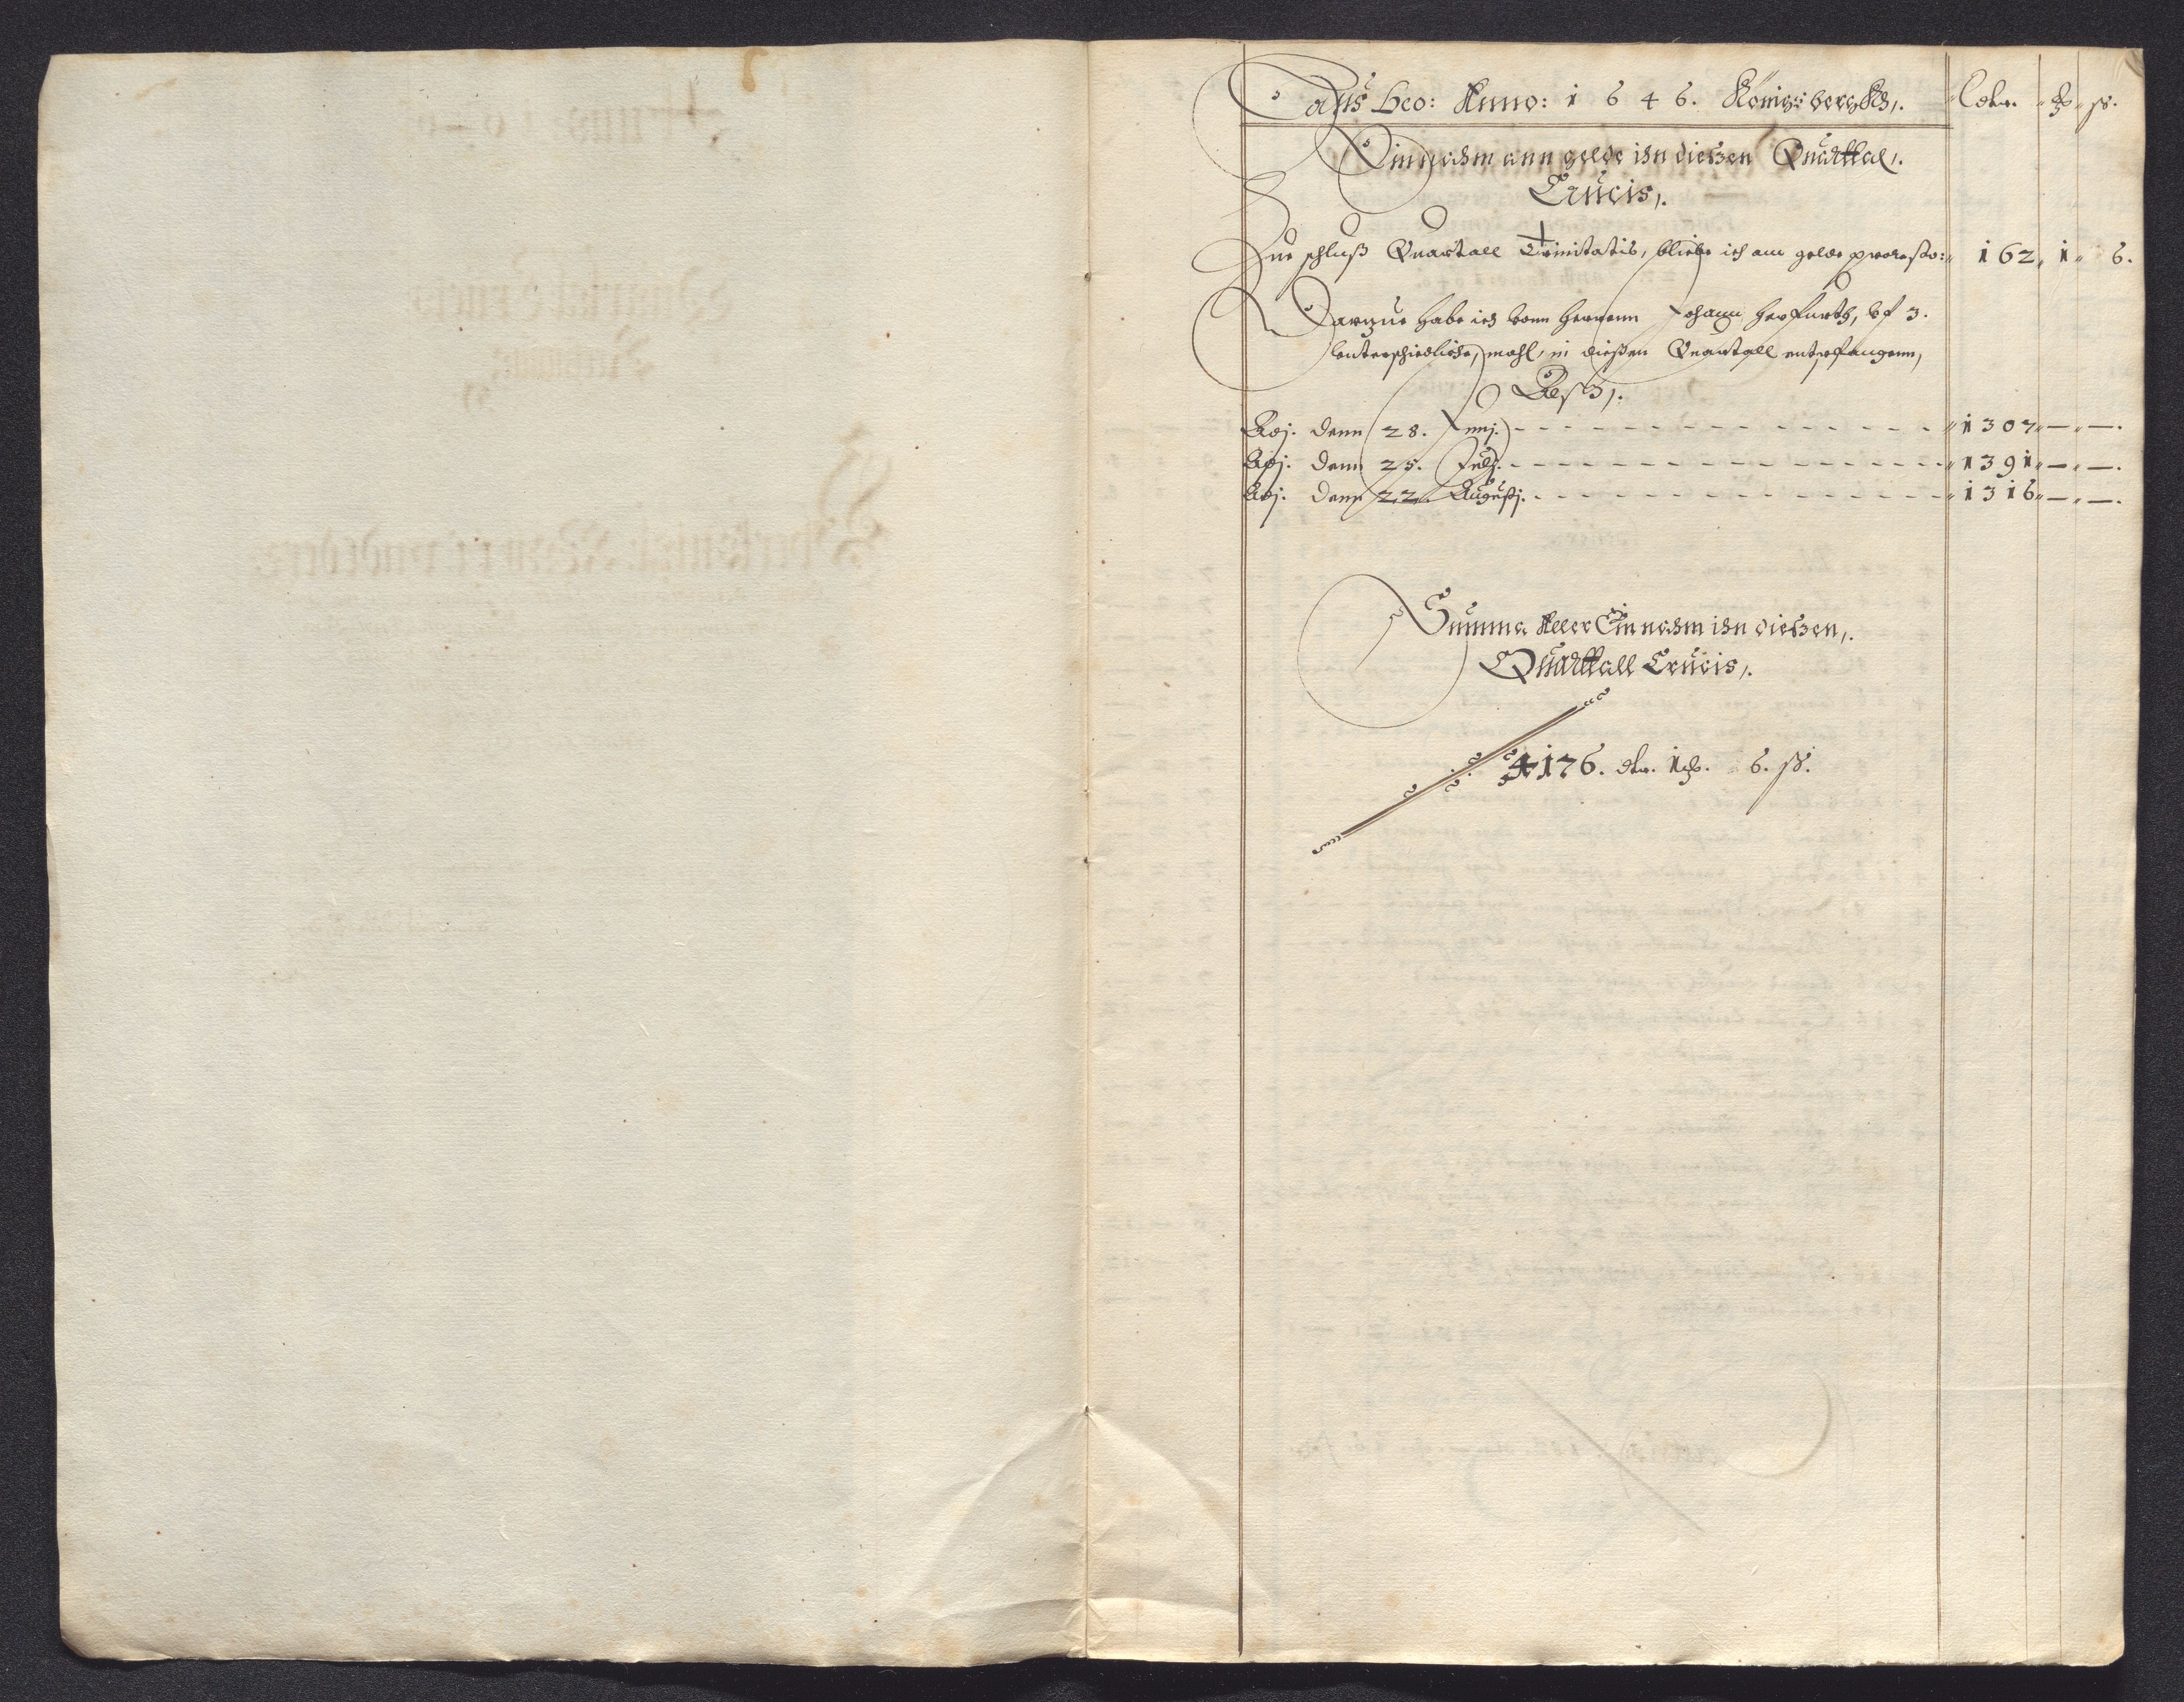 Laus Deo: Anno: 1646. Königsbergk,. dr. ß.
Einnahm ann gelde ihn dießen Quarttal,.
Crucis,.
Zue schluß Quartall Trinitatis, bliebe ich am gelde pro resto: 162, 1 6.
Darzue habe ich vonn Herrenn Johann Herfurth, vf 3.
vnterschiedliche, mahl, in dießen Quartall entpfangenn,
Alß,.
Adj. denn 28. Junj. 1307 — — .
Adj. denn 25. Julj. 1391 — — .
Adj. denn 22. Augustj. 1316 — — .
Summa Aller Einnahm ihn dießen,.
Quarttall Crucis,.
4176. dr. 1 6. ß.